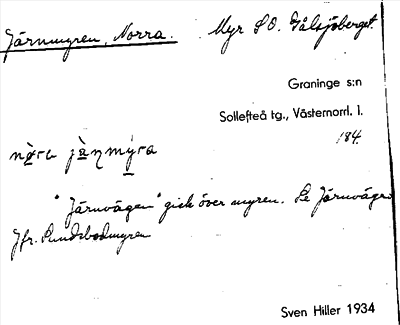 Järnmyren, Norra. Myr S O. Gålsjöberget.
Graninge s:n
Sollefteå tg., Västernorrl. l.
184.
"Järnvägen" gick över myren. Se Järnvägen
Jfr. Sundsbodmyren
Sven Hiller 1934